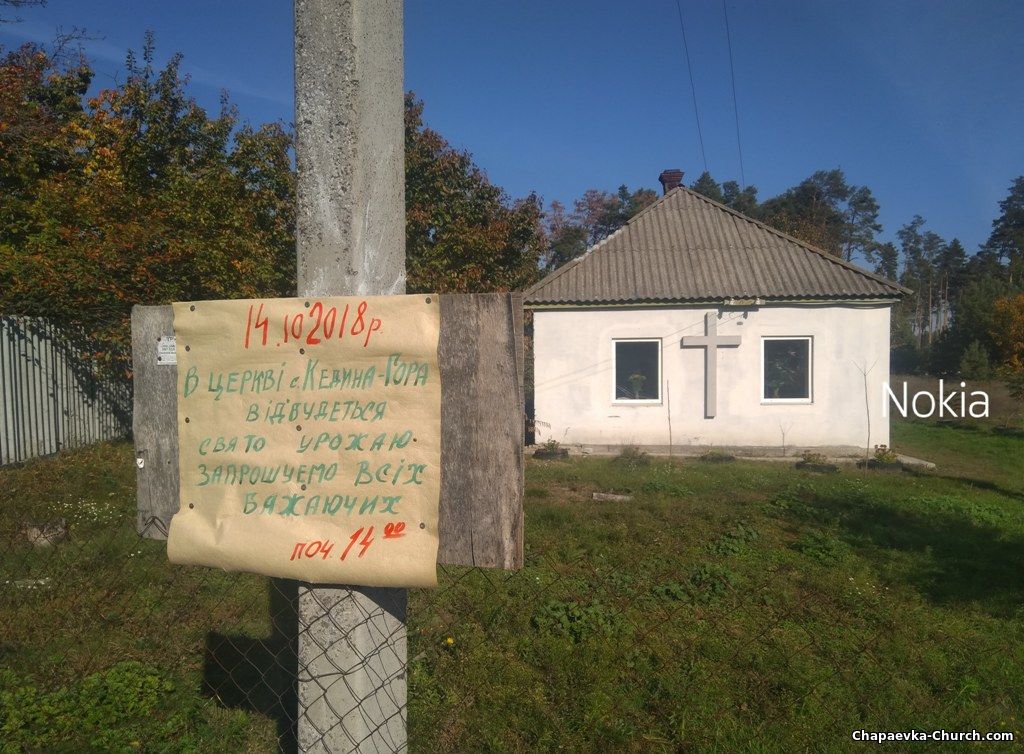 14.10 2018 р.
В ЦЕРКВІ с. КЕДИНА-ГОРА
ВІДБУДЕТЬСЯ
СВЯТО УРОЖАЮ.
ЗАПРОШУЄМО ВСІХ
БАЖАЮЧИХ
ПОЧ. 14 00
Nokia
Chapaevka-Church.com